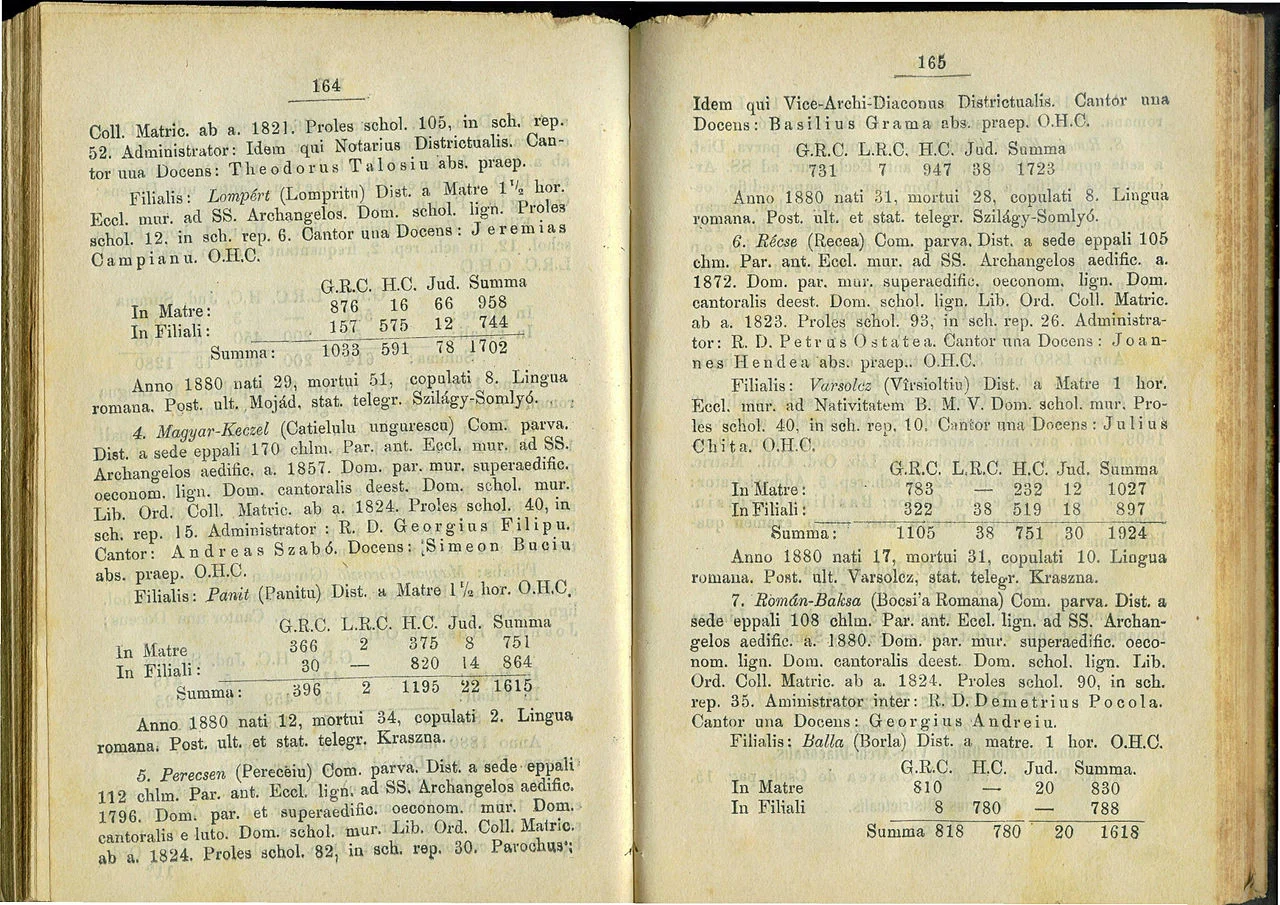 164
Coll. Matric. ab a. 1821. Proles schol. 105, in sch. rep.
52. Administrator: Idem qui Notarius Districtualis. Can-
tor una Docens: Theodorus Talosiu abs. praep.
Filialis: Lompért (Lompritu) Dist. a Matre 1 1/2 hor.
Eccl. mur. ad SS. Archangelos. Dom. schol. lign. Proles
schol. 12, in sch. rep. 6. Cantor una Docens: Jeremias
Campianu. O.H.C.
G.R.C. H.C. Jud. Summa
In Matre: 876 16 66 958
In Filiali: 157 575 12 744
Summa: 1033 591 78 1702
Anno 1880 nati 29, mortui 51, copulati 8. Lingua
romana. Post. ult. Mojád, stat. telegr. Szilágy-Somlyó.
4. Magyar-Keczel (Catielulu ungurescu) Com. parva.
Dist. a sede eppali 170 chlm. Par. ant. Eccl. mur. ad SS.
Archangelos aedific. a. 1857. Dom. par. mur. superaedific.
oeconom. lign. Dom. cantoralis deest. Dom. schol. mur.
Lib. Ord. Coll. Matric. ab a. 1824. Proles schol. 40, in
sch. rep. 15. Administrator : R. D. Georgius Filipu.
Cantor: Andreas Szabó. Docens: Simeon Buciu
abs. praep. O.H.C.
Filialis: Panit (Panitu) Dist. a Matre 1 1/2 hor. O.H.C.
G.R.C. L.R.C. H.C. Jud. Summa
In Matre 366 2 375 8 751
In Filiali: 30 — 820 14 864
Summa: 396 2 1195 22 1615
Anno 1880 nati 12, mortui 34, copulati 2. Lingua
romana. Post. ult. et stat. telegr. Kraszna.
5. Perecsen (Perecèiu) Com. parva. Dist. a sede eppali
112 chlm. Par. ant. Eccl. lign. ad SS. Archangelos aedific.
1796. Dom. par. et superaedific. oeconom. mur. Dom.
cantoralis e luto. Dom. schol. mur. Lib. Ord. Coll. Matric.
ab a. 1824. Proles schol. 82, in sch. rep. 30. Parochus:
165
Idem qui Vice-Archi-Diaconus Districtualis. Cantor una
Docens: Basilius Grama abs. praep. O.H.C.
G.R.C. L.R.C. H.C. Jud. Summa
731 7 947 38 1723
Anno 1880 nati 31, mortui 28, copulati 8. Lingua
romana. Post. ult. et stat. telegr. Szilágy-Somlyó.
6. Récse (Recea) Com. parva. Dist. a sede eppali 105
chm. Par. ant. Eccl. mur. ad SS. Archangelos aedific. a.
1872. Dom. par. mur. superaedific. oeconom. lign. Dom.
cantoralis deest. Dom. schol. lign. Lib. Ord. Coll. Matric.
ab a. 1823. Proles schol. 93, in sch. rep. 26. Administra-
tor: R. D. Petrus Ostatea. Cantor una Docens: Joan-
nes Hendea abs. praep.. O.H.C.
Filialis: Varsolcz (Vîrsioltiu) Dist. a Matre 1 hor.
Eccl. mur. ad Nativitatem B. M. V. Dom. schol. mur. Pro-
les schol. 40, in sch. rep. 10. Cantor una Docens: Julius
Chita. O.H.C.
G.R.C. L.R.C. H.C. Jud. Summa
In Matre: 783 — 232 12 1027
In Filiali: 322 38 519 18 897
Summa: 1105 38 751 30 1924
Anno 1880 nati 17, mortui 31, copulati 10. Lingua
romana. Post. ult. Varsolcz, stat. telegr. Kraszna.
7. Román-Baksa (Bocsi'a Romana) Com. parva. Dist. a
sede eppali 108 chlm. Par. ant. Eccl. lign. ad SS. Archan-
gelos aedific. a. 1880. Dom. par. mur. superaedific. oeco-
nom. lign. Dom. cantoralis deest. Dom. schol. lign. Lib.
Ord. Coll. Matric. ab a. 1824. Proles schol. 90, in sch.
rep. 35. Aministrator inter: R. D. Demetrius Pocola.
Cantor una Docens: Georgius Andreiu.
Filialis: Balla (Borla) Dist. a matre. 1 hor. O.H.C.
G.R.C. H.C. Jud. Summa.
In Matre 810 — 20 830
In Filiali 8 780 — 788
Summa 818 780 20 1618